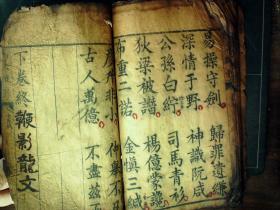 易操守劍 歸罪遺縑
深情子野 神識阮咸
公孫白紵 司馬青衫
狄梁被譖 楊億蒙讒
布重一諾 金慎三緘
非少 仲舉不
古人萬億 不盡茲
下卷終 鞭影龍文